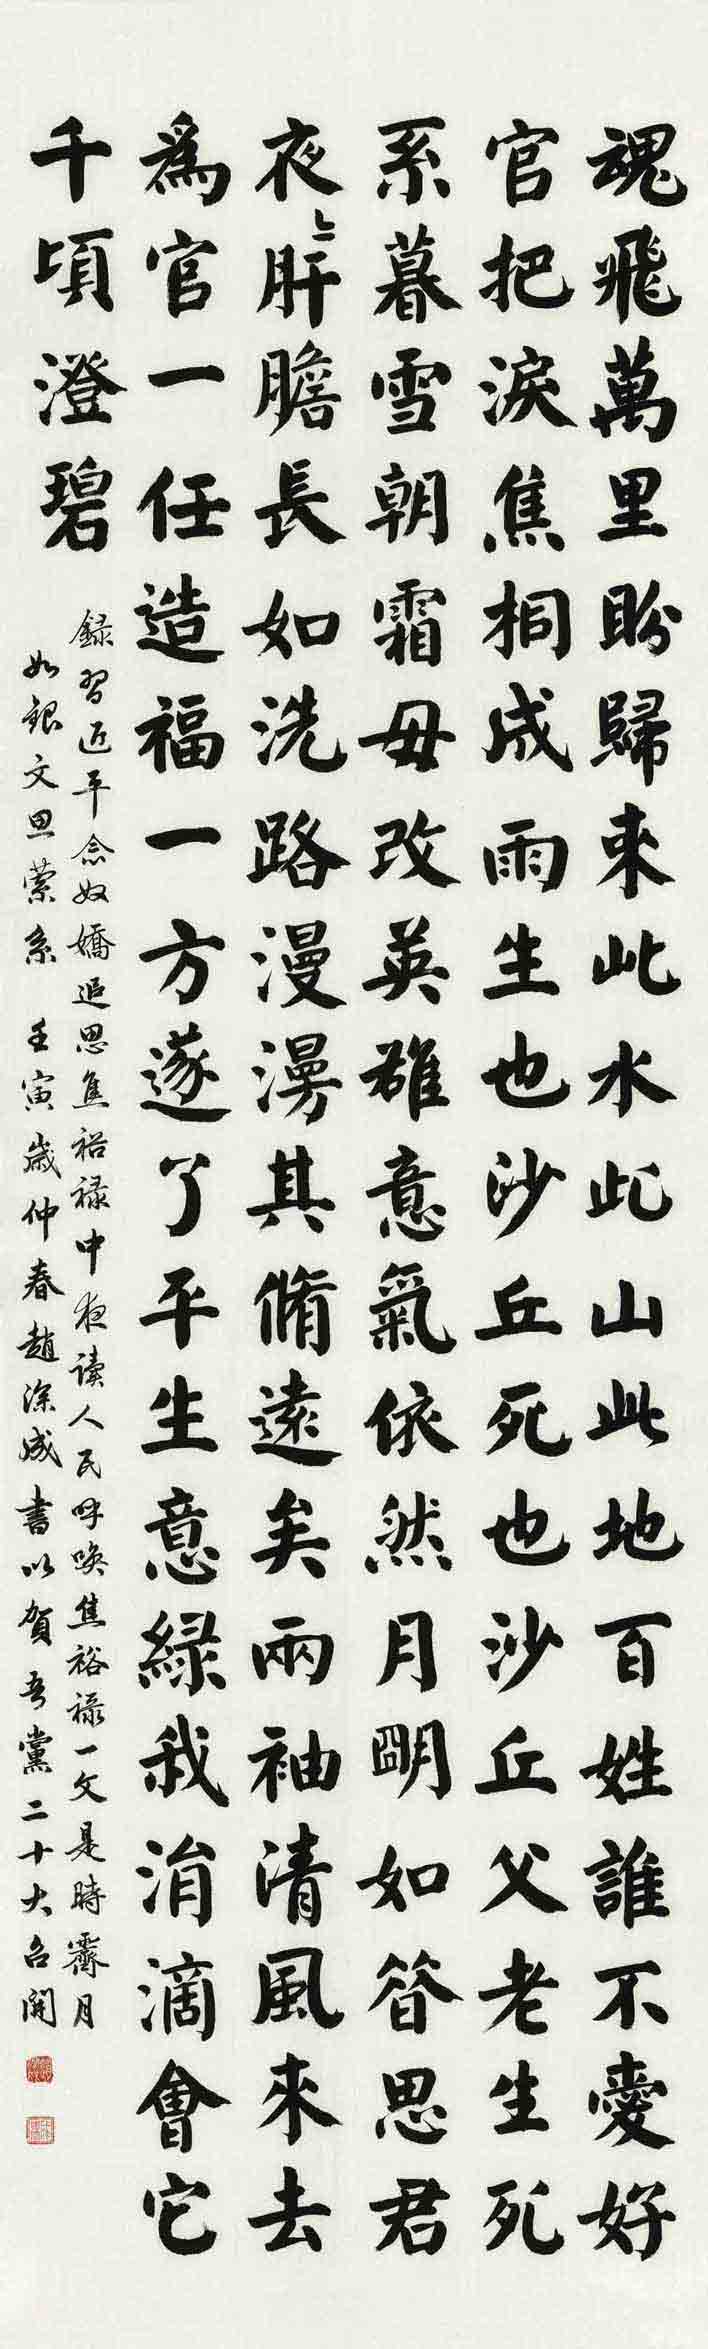 魂飛萬里盼歸來此水此山此地百姓誰不愛好
官把淚焦桐成雨生也沙丘死也沙丘父老生死
系暮雪朝霜毋改英雄意氣依然月明如昝思君
夜〻肝膽長如洗路漫漫其脩遠矣兩袖清風來去
為官一任造福一方遂了平生意綠我涓滴會它
千頃澄碧
錄習近平念奴嬌追思焦裕祿中夜讀人民呼喚焦裕祿一文是時霽月
如銀文思縈系 壬寅歲仲春趙深成書以賀吾黨二十大召開